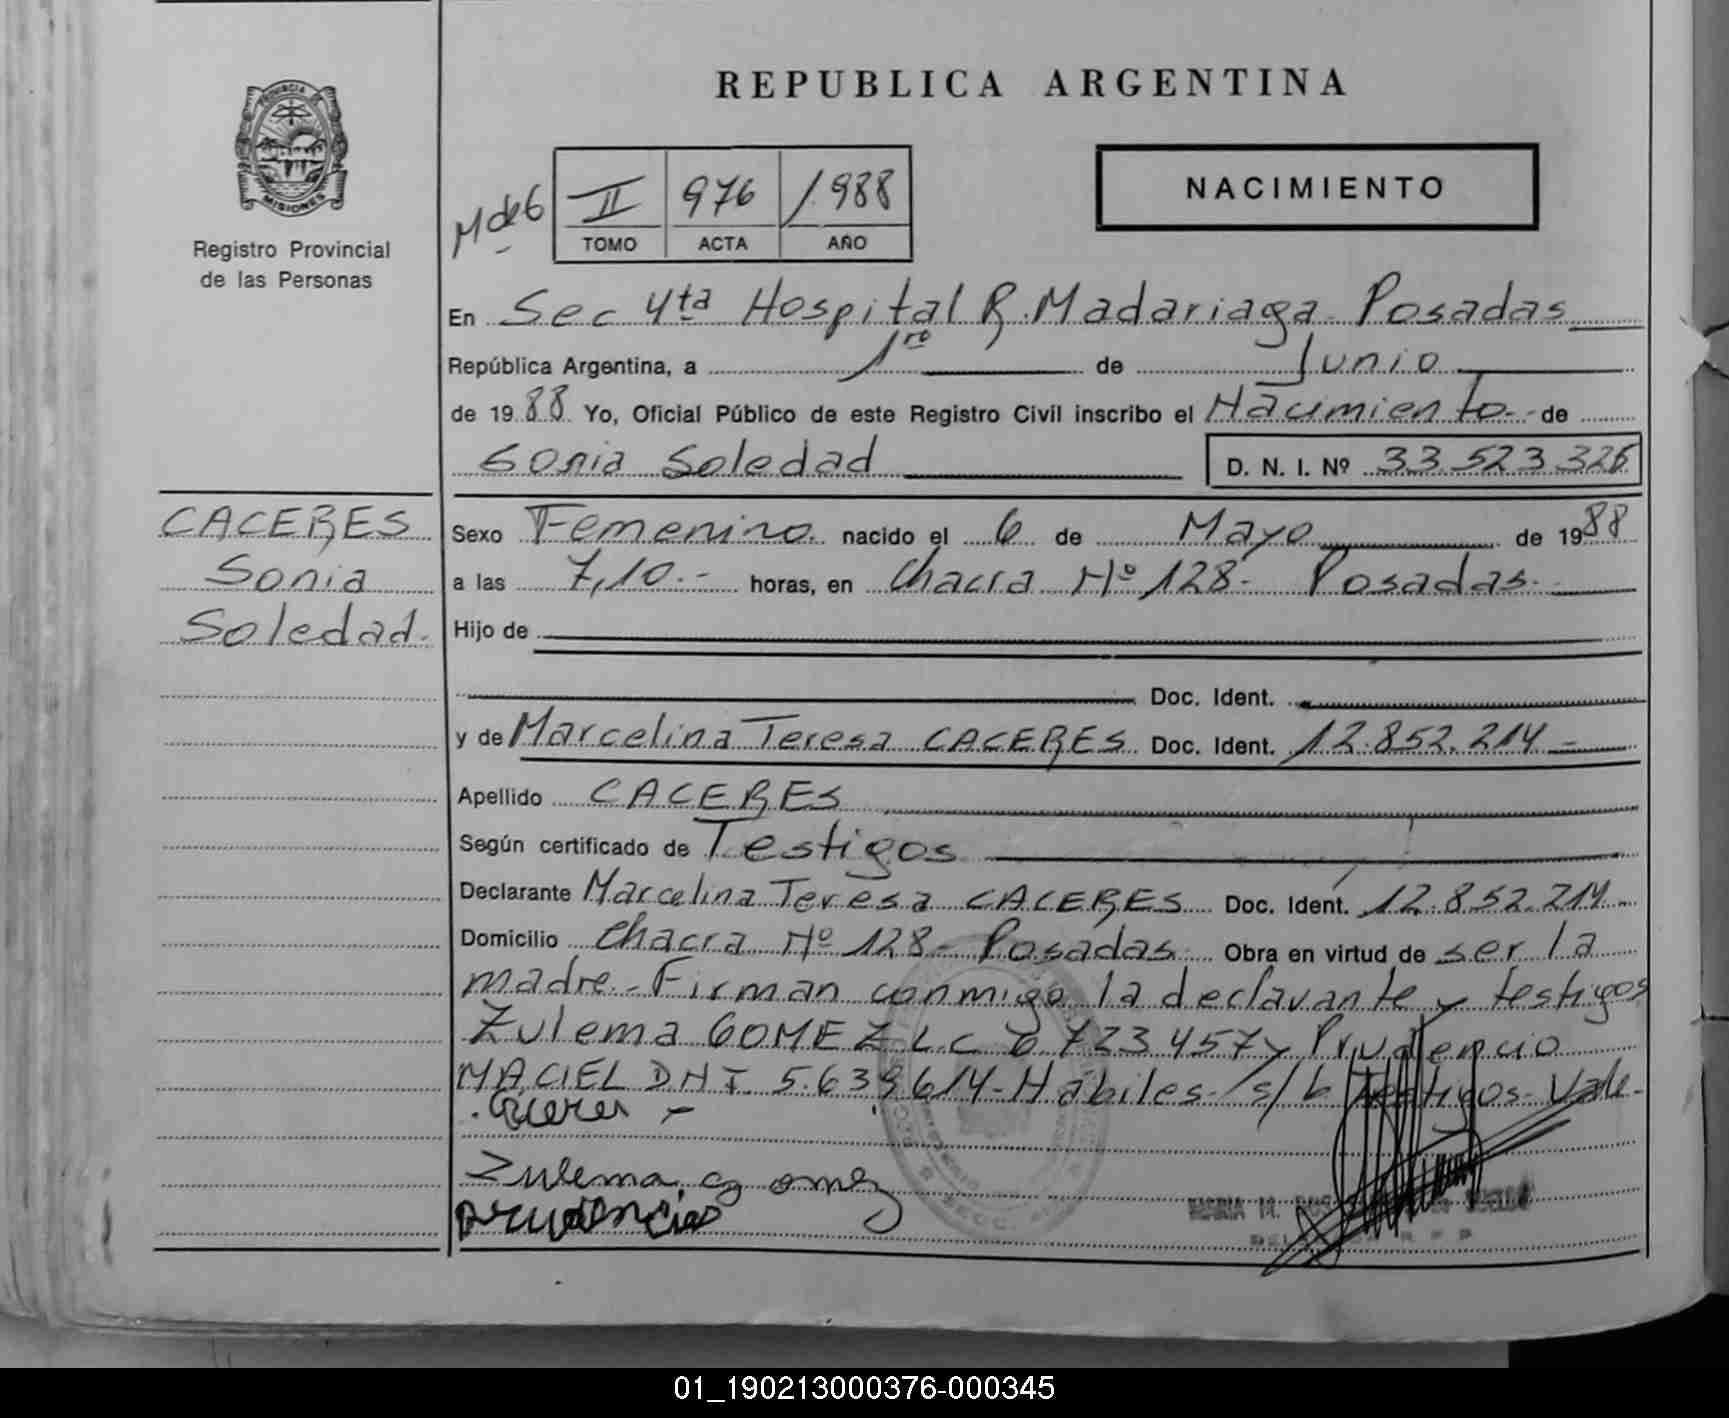 REPUBLICA ARGENTINA
PROVINCIA DE
MISIONES
Registro Provincial
de las Personas
M de 6
II 976 1.988
TOMO ACTA AÑO
NACIMIENTO
En Sec 4ta Hospital R. Madariaga - Posadas
República Argentina, a 1ro de Junio
de 1988 Yo, Oficial Público de este Registro Civil inscribo el Nacimiento - de
Sonia Soledad D. N. I. Nº 33 523 326
CACERES
Sonia
Soledad.
Sexo Femenino nacido el 6 de Mayo de 1988
a las 7,10.- horas, en Chacra Nº 128- Posadas.
Hijo de
Doc. Ident.
y de Marcelina Teresa CACERES Doc. Ident. 12.852.214-
Apellido CACERES
Según certificado de Testigos
Declarante Marcelina Teresa CACERES Doc. Ident. 12.852.214-
Domicilio Chacra Nº 128- Posadas Obra en virtud de ser la
madre.- Firman conmigo la declarante y testigos
Zulema GOMEZ L.C 6 723 457 y Prudencio
MACIEL DNI. 5.639.614- Habiles- s/b Testigos- Vale-
Caceres -
Zulema gomez
prudencio
MARIA M.
01_190213000376-000345